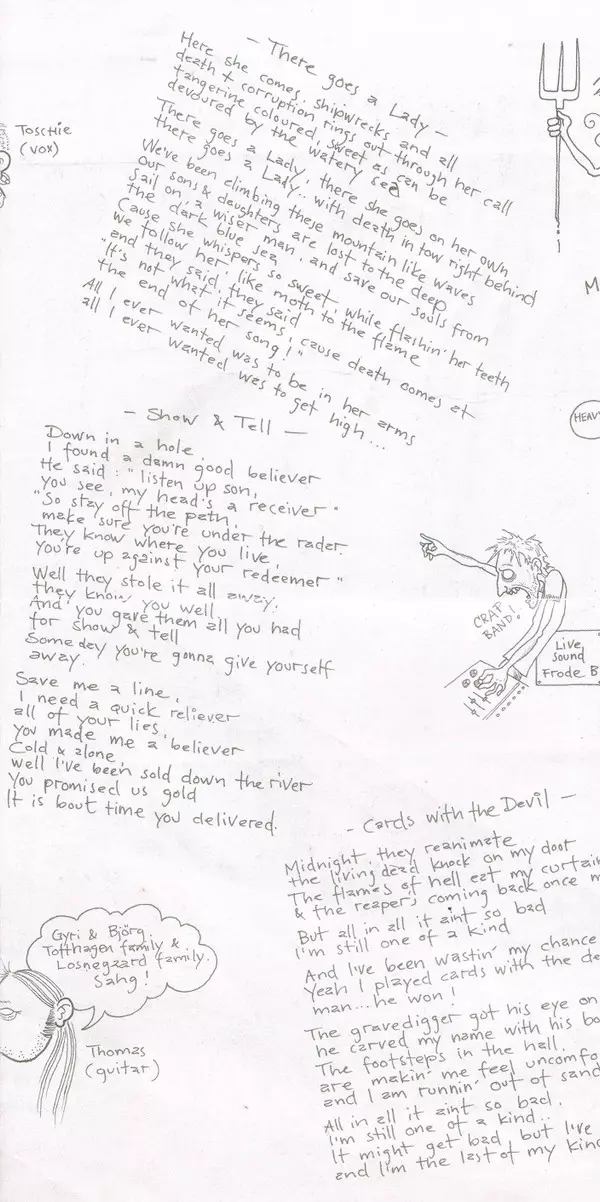 — There goes a Lady —
Here she comes, shipwrecks and all
death + corruption rings out through her call
tangerine coloured, sweet as can be
devoured by the watery sea
There goes a Lady, there she goes on her own
there goes a Lady.. with death in tow right behind
We've been climbing these mountain like waves
our sons & daughters are lost to the deep
Sail on, a wiser man, and save our souls from
the dark blue sea
Cause she whispers so sweet, while flashin' her teeth
we follow her, like moth to the flame
and they said, they said
"It's not what it seems, cause death comes at
the end of her song!"
All I ever wanted, was to be in her arms
all I ever wanted was to get high...
Toschie
(vox)
M
HEAVY
— Show & Tell —
Down in a hole,
I found a damn good believer
He said: "listen up son,
you see, my head's a receiver"
"So stay off the path,
make sure you're under the radar.
They know where you live,
You're up against your redeemer"
Well they stole it all away,
they know you well,
And you gave them all you had
for show & tell
Some day you're gonna give yourself
away.
Save me a line,
I need a quick reliever
all of your lies,
you made me a believer
Cold & alone,
well I've been sold down the river
You promised us gold
It is bout time you delivered.
CRAP
BAND!
Live
Sound
Frode B
— Cards with the Devil —
Midnight, they reanimate
the living dead knock on my door
The flames of hell eat my curtain
& the reaper's coming back once m
But all in all it aint so bad
I'm still one of a kind
And I've been wastin' my chance
Yeah I played cards with the de
man... he won!
The gravedigger got his eye on
he carved my name with his bo
The footsteps in the hall,
are makin' me feel uncomfo
and I am runnin' out of sand
All in all it aint so bad.
I'm still one of a kind..
It might get bad, but I've
and I'm the last of my kind
Gyri & Björg,
Tofthagen family &
Losnegaard family.
Sahg!
Thomas
(guitar)